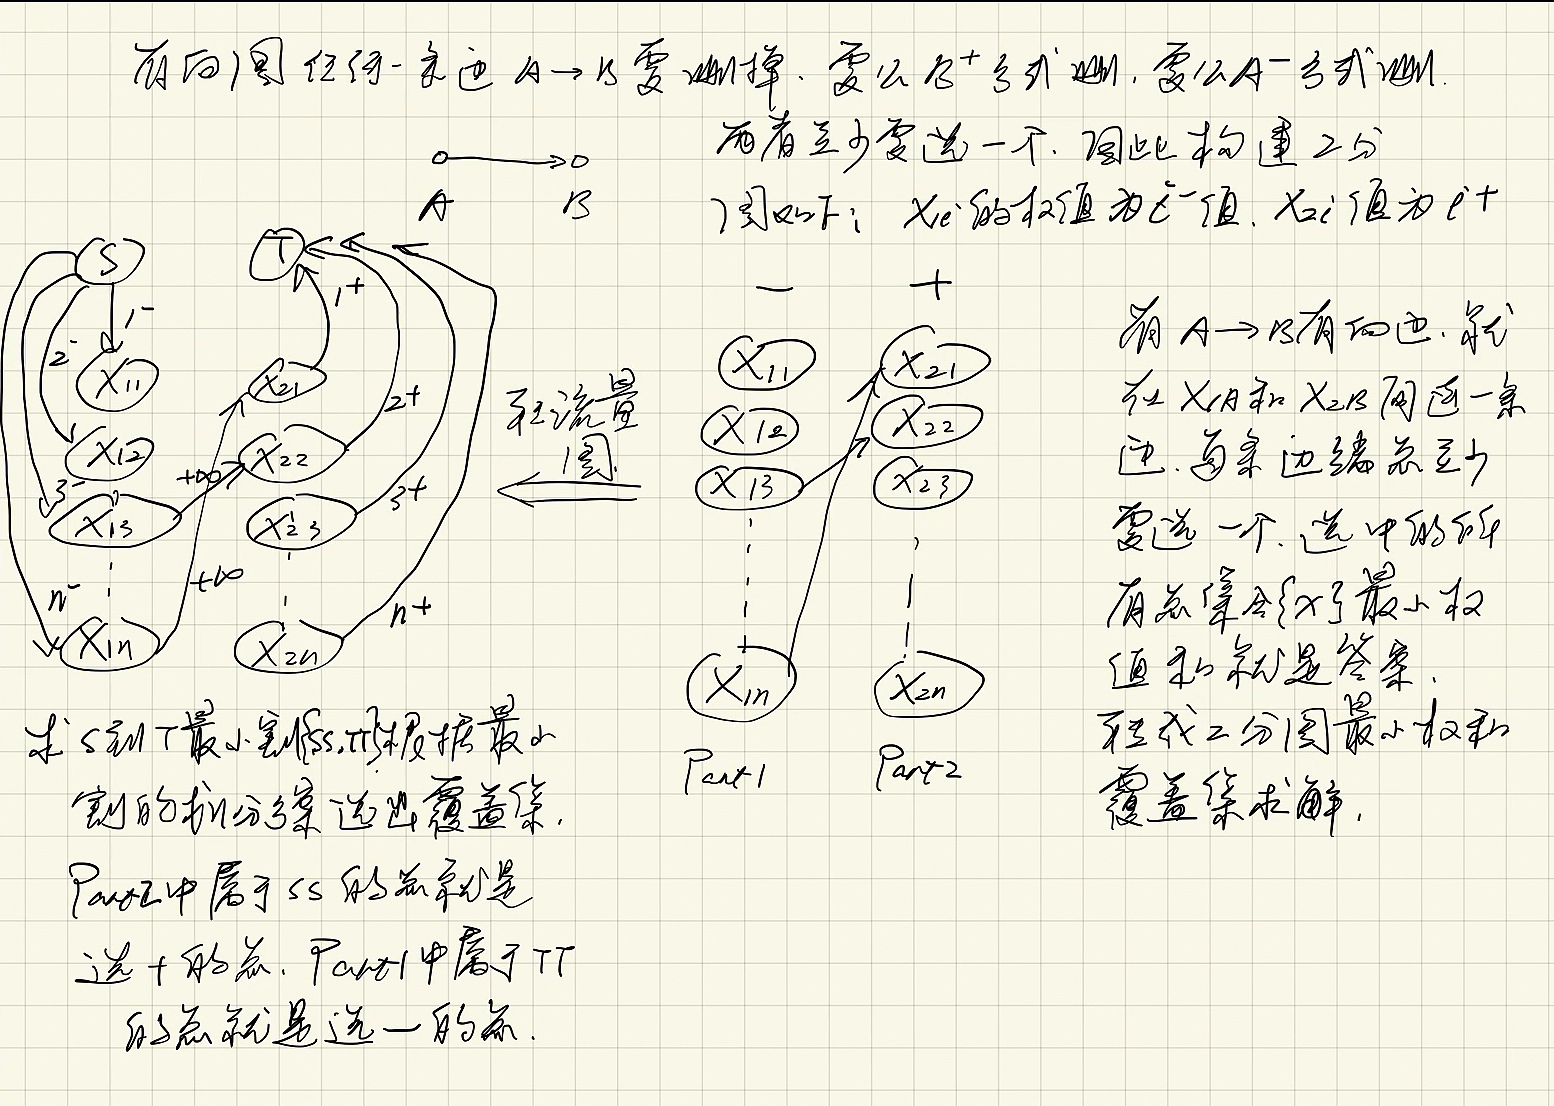 有向图任何一条边 A→B 要删掉. 要么 B+ 方式删, 要么 A- 方式删.
两者至少要选一个. 因此构建2分
图如下; X1i 的权值为 i- 值. X2i 值为 i+
A B
S T
1- 1+
2- 2+
3- 3+
n- n+
X11 X21
X12 X22
X13 X23
X1n X2n
+∞
+∞
转流量
图.
- +
X11 X21
X12 X22
X13 X23
X1n X2n
Part1 Part2
有 A→B有向边. 就
在 X1A和 X2B 间连一条
边. 每条边端点至少
要选一个. 选中的所
有点集合{x}最小权
值和就是答案.
转成二分图最小权和
覆盖集求解.
求 S到T最小割{SS,TT}.根据最小
割的划分方案选出覆盖集.
Part2中属于SS的点就是
选+的点. Part1中属于TT
的点就是选-的点.